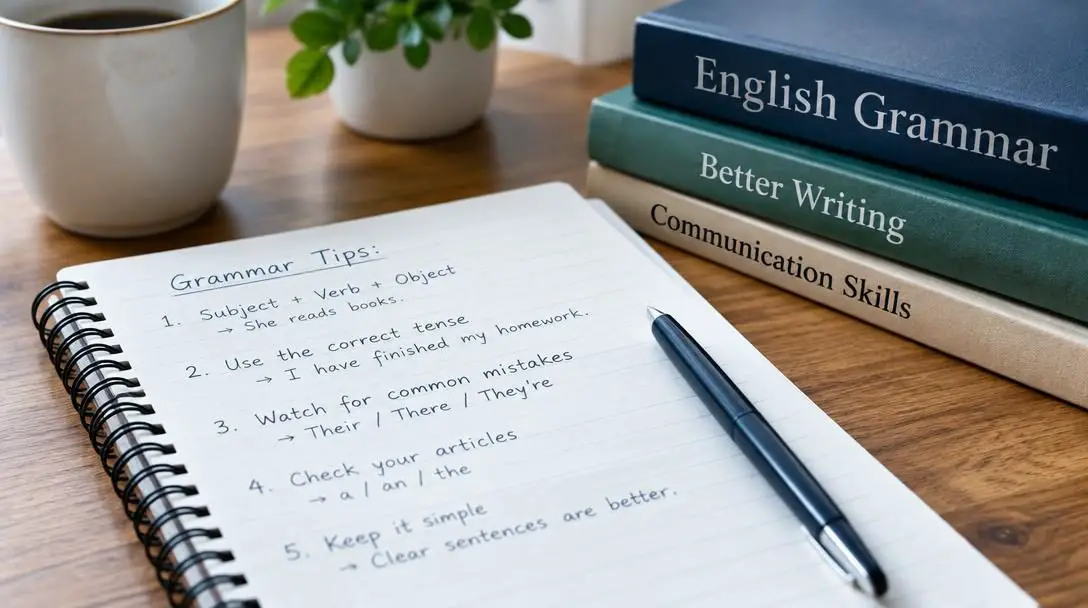 Grammar Tips:
1. Subject + Verb + Object
→ She reads books.
2. Use the correct tense
→ I have finished my homework.
3. Watch for common mistakes
→ Their / There / They're
4. Check your articles
→ a / an / the
5. Keep it simple
→ Clear sentences are better.
English Grammar
Better Writing
Communication Skills